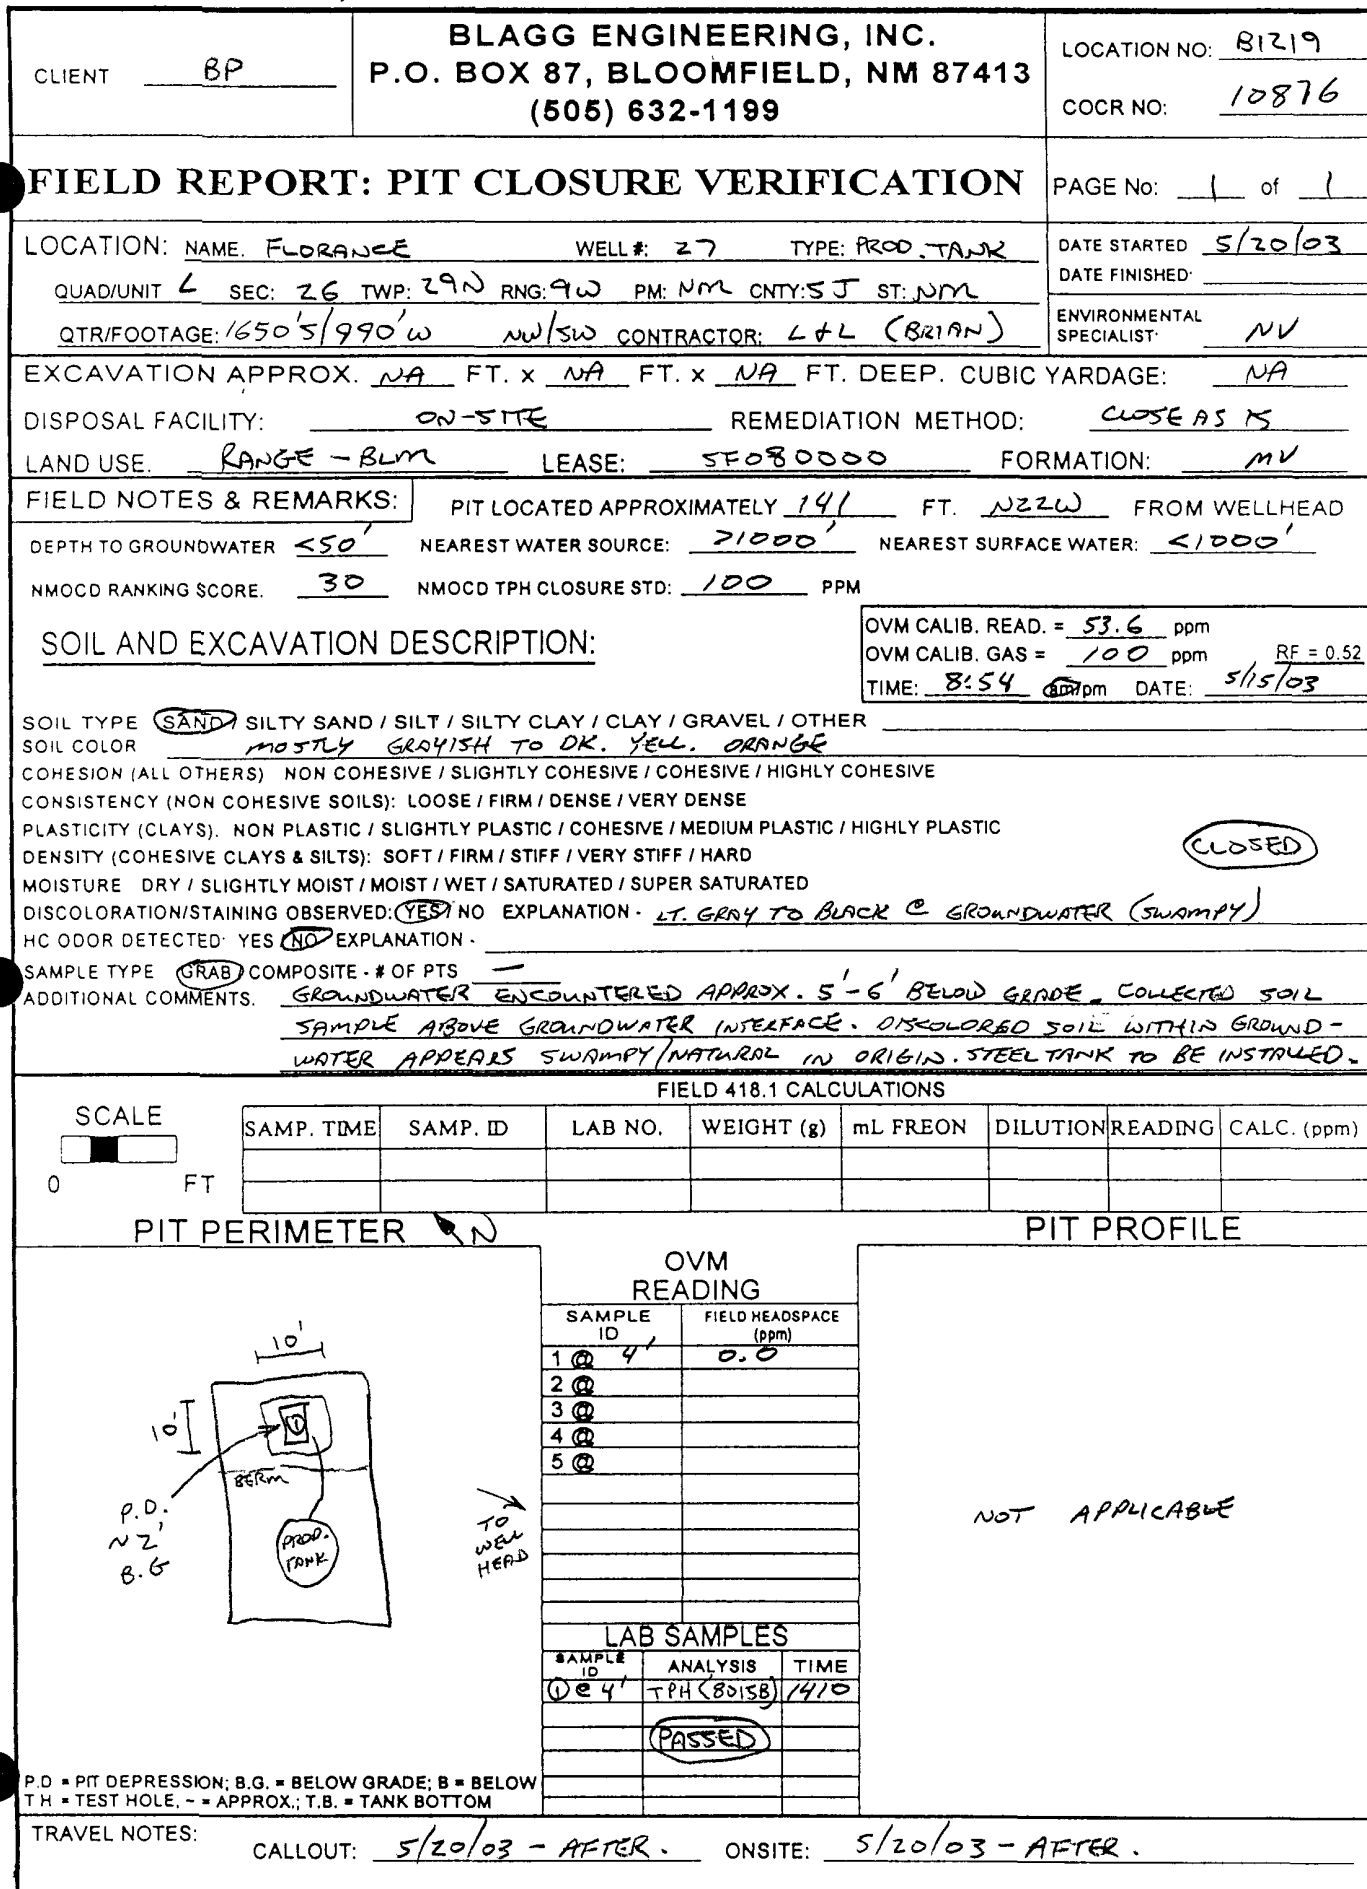 BLAGG ENGINEERING, INC.
P.O. BOX 87, BLOOMFIELD, NM 87413
(505) 632-1199
CLIENT BP
LOCATION NO: B1219
COCR NO: 10876
FIELD REPORT: PIT CLOSURE VERIFICATION
PAGE No: 1 of 1
LOCATION: NAME. FLORANCE WELL #: 27 TYPE: PROD. TANK
QUAD/UNIT L SEC: 26 TWP: 29N RNG: 9W PM: NM CNTY: SJ ST: NM
QTR/FOOTAGE: 1650'S/990'W NW/SW CONTRACTOR: L+L (BRIAN)
DATE STARTED 5/20/03
DATE FINISHED:
ENVIRONMENTAL
SPECIALIST: NV
EXCAVATION APPROX. NA FT. x NA FT. x NA FT. DEEP. CUBIC YARDAGE: NA
DISPOSAL FACILITY: ON-SITE REMEDIATION METHOD: CLOSE AS IS
LAND USE. RANGE - BLM LEASE: SF080000 FORMATION: MV
FIELD NOTES & REMARKS: PIT LOCATED APPROXIMATELY 141 FT. N22W FROM WELLHEAD
DEPTH TO GROUNDWATER <50' NEAREST WATER SOURCE: >1000' NEAREST SURFACE WATER: <1000'
NMOCD RANKING SCORE. 30 NMOCD TPH CLOSURE STD: 100 PPM
SOIL AND EXCAVATION DESCRIPTION:
OVM CALIB. READ. = 53.6 ppm
OVM CALIB. GAS = 100 ppm RF = 0.52
TIME: 8:54 am/pm DATE: 5/15/03
SOIL TYPE SAND / SILTY SAND / SILT / SILTY CLAY / CLAY / GRAVEL / OTHER
SOIL COLOR MOSTLY GRAYISH TO DK. YELL. ORANGE
COHESION (ALL OTHERS) NON COHESIVE / SLIGHTLY COHESIVE / COHESIVE / HIGHLY COHESIVE
CONSISTENCY (NON COHESIVE SOILS): LOOSE / FIRM / DENSE / VERY DENSE
PLASTICITY (CLAYS). NON PLASTIC / SLIGHTLY PLASTIC / COHESIVE / MEDIUM PLASTIC / HIGHLY PLASTIC
DENSITY (COHESIVE CLAYS & SILTS): SOFT / FIRM / STIFF / VERY STIFF / HARD
CLOSED
MOISTURE DRY / SLIGHTLY MOIST / MOIST / WET / SATURATED / SUPER SATURATED
DISCOLORATION/STAINING OBSERVED: YES / NO EXPLANATION - LT. GRAY TO BLACK @ GROUNDWATER (SWAMPY)
HC ODOR DETECTED: YES / NO EXPLANATION -
SAMPLE TYPE GRAB / COMPOSITE - # OF PTS —
ADDITIONAL COMMENTS. GROUNDWATER ENCOUNTERED APPROX. 5'-6' BELOW GRADE. COLLECTED SOIL
SAMPLE ABOVE GROUNDWATER INTERFACE. DISCOLORED SOIL WITHIN GROUND-
WATER APPEARS SWAMPY/NATURAL IN ORIGIN. STEEL TANK TO BE INSTALLED.
FIELD 418.1 CALCULATIONS
SCALE
0 FT
SAMP. TIME SAMP. ID LAB NO. WEIGHT (g) mL FREON DILUTION READING CALC. (ppm)
PIT PERIMETER N
PIT PROFILE
10'
10'
BERM
P.D.
~2'
B.G
1
PROD.
TANK
TO
WELL
HEAD
OVM
READING
SAMPLE ID FIELD HEADSPACE (ppm)
1 @ 4' 0.0
2 @
3 @
4 @
5 @
NOT APPLICABLE
LAB SAMPLES
SAMPLE ID ANALYSIS TIME
① @ 4' TPH (8015B) 1410
PASSED
P.D = PIT DEPRESSION; B.G. = BELOW GRADE; B = BELOW
T H = TEST HOLE, ~ = APPROX.; T.B. = TANK BOTTOM
TRAVEL NOTES: CALLOUT: 5/20/03 - AFTER. ONSITE: 5/20/03 - AFTER.